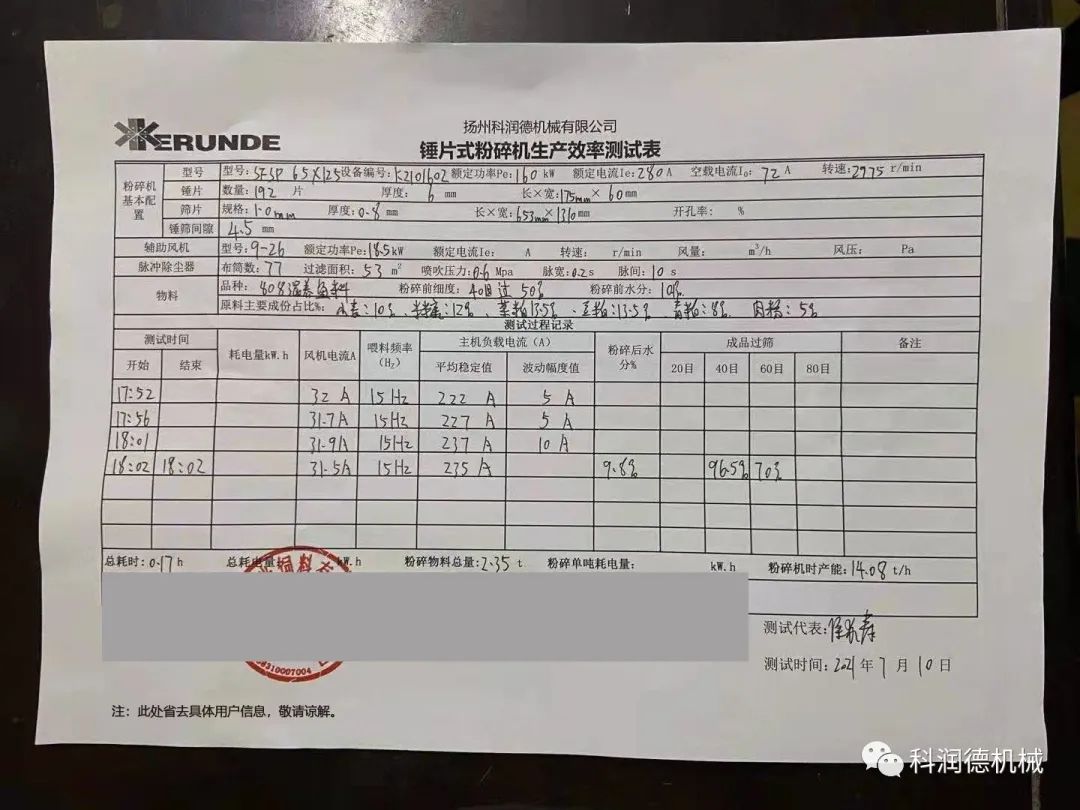 KERUNDE
扬州科润德机械有限公司
锤片式粉碎机生产效率测试表
粉碎机基本配置
型号 型号:SFSP 65X125 设备编号:K2101602 额定功率Pe:160kW 额定电流Ie:280A 空载电流I₀:72A 转速:2975r/min
锤片 数量:192片 厚度:6mm 长×宽:175mm×60mm
筛片 规格:1.0mm 厚度:0.8mm 长×宽:653mm×1310mm 开孔率: %
锤筛间隙 4.5mm
辅助风机 型号:9-26 额定功率Pe:18.5kW 额定电流Ie: A 转速: r/min 风量: m³/h 风压: Pa
脉冲除尘器 布筒数:77 过滤面积:53m² 喷吹压力:0.6Mpa 脉宽:0.2s 脉间:10s
物料 品种:808混养鱼料 粉碎前细度:40目过50% 粉碎前水分:10%
原料主要成份占比%: 小麦:10%、米糠:12%、菜粕13.5%、豆粕:13.5% 8% 肉粉:5%
测试过程记录
测试时间 耗电量kW.h 风机电流A 喂料频率(Hz) 主机负载电流(A) 粉碎后水分% 成品过筛 备注
开始 结束 平均稳定值 波动幅度值 20目 40目 60目 80目
17:52 32A 15Hz 222A 5A
17:56 31.7A 15Hz 227A 5A
18:01 31.9A 15Hz 237A 10A
18:02 18:02 31.5A 15Hz 235A 9.8% 96.5% 70%
总耗时:0.17h 总耗电量: kW.h 粉碎物料总量:2.35t 粉碎单吨耗电量: kW.h 粉碎机时产能:14.08t/h
饲料
8310007004
测试代表:
测试时间:2021年7月10日
注:此处省去具体用户信息,敬请谅解。
科润德机械